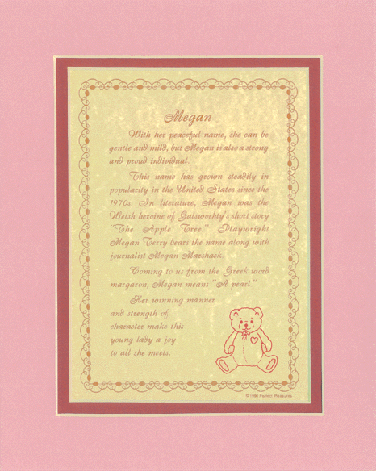 Megan
With her peaceful name, she can be
gentle and mild, but Megan is also a strong
and proud individual.
This name has grown steadily in
popularity in the United States since the
1970s. In literature, Megan was the
Welsh heroine of Galsworthy's short story
"The Apple Tree." Playwright
Megan Terry bears the name along with
journalist Megan Marshack.
Coming to us from the Greek word
margaron, Megan means "A pearl."
Her winning manner
and strength of
character make this
young lady a joy
to all she meets.